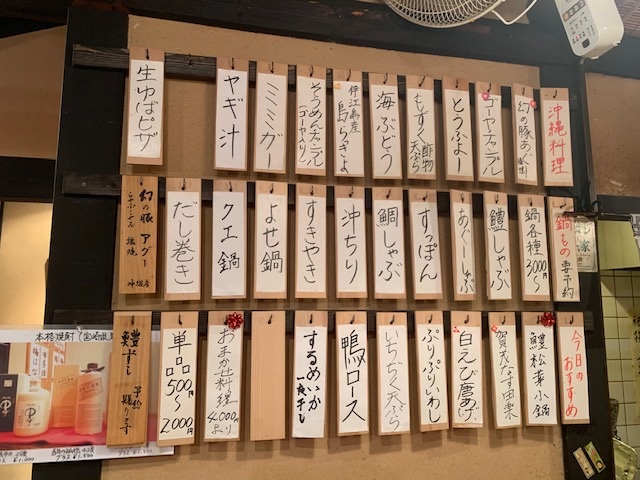 沖縄料理
幻の豚あぐー
ゴーヤチャンプル
とうふよー
もずく酢物
天ぷら
海ぶどう
伊江島産
島らきょ
そうめんチャンプル
(ゴーヤ入り)
ミミガー
ヤギ汁
生ゆばピザ
鍋もの 要予約
鍋各種
3000円〜
鱧しゃぶ
あぐーしゃぶ
すっぽん
鯛しゃぶ
沖ちり
すきやき
よせ鍋
クエ鍋
だし巻き
幻の豚 アグー
塩焼
沖縄産
今日の
おすすめ
鱧松茸小鍋
賀茂なす田楽
白えび唐あげ
ぷりぷりいわし
いちぢく天ぷら
鴨ロース
するめいか
一夜干し
おまかせ料理
4,000円より
単品
500円〜
2000円
鱧ずし
予約
賜ります
本格焼酎